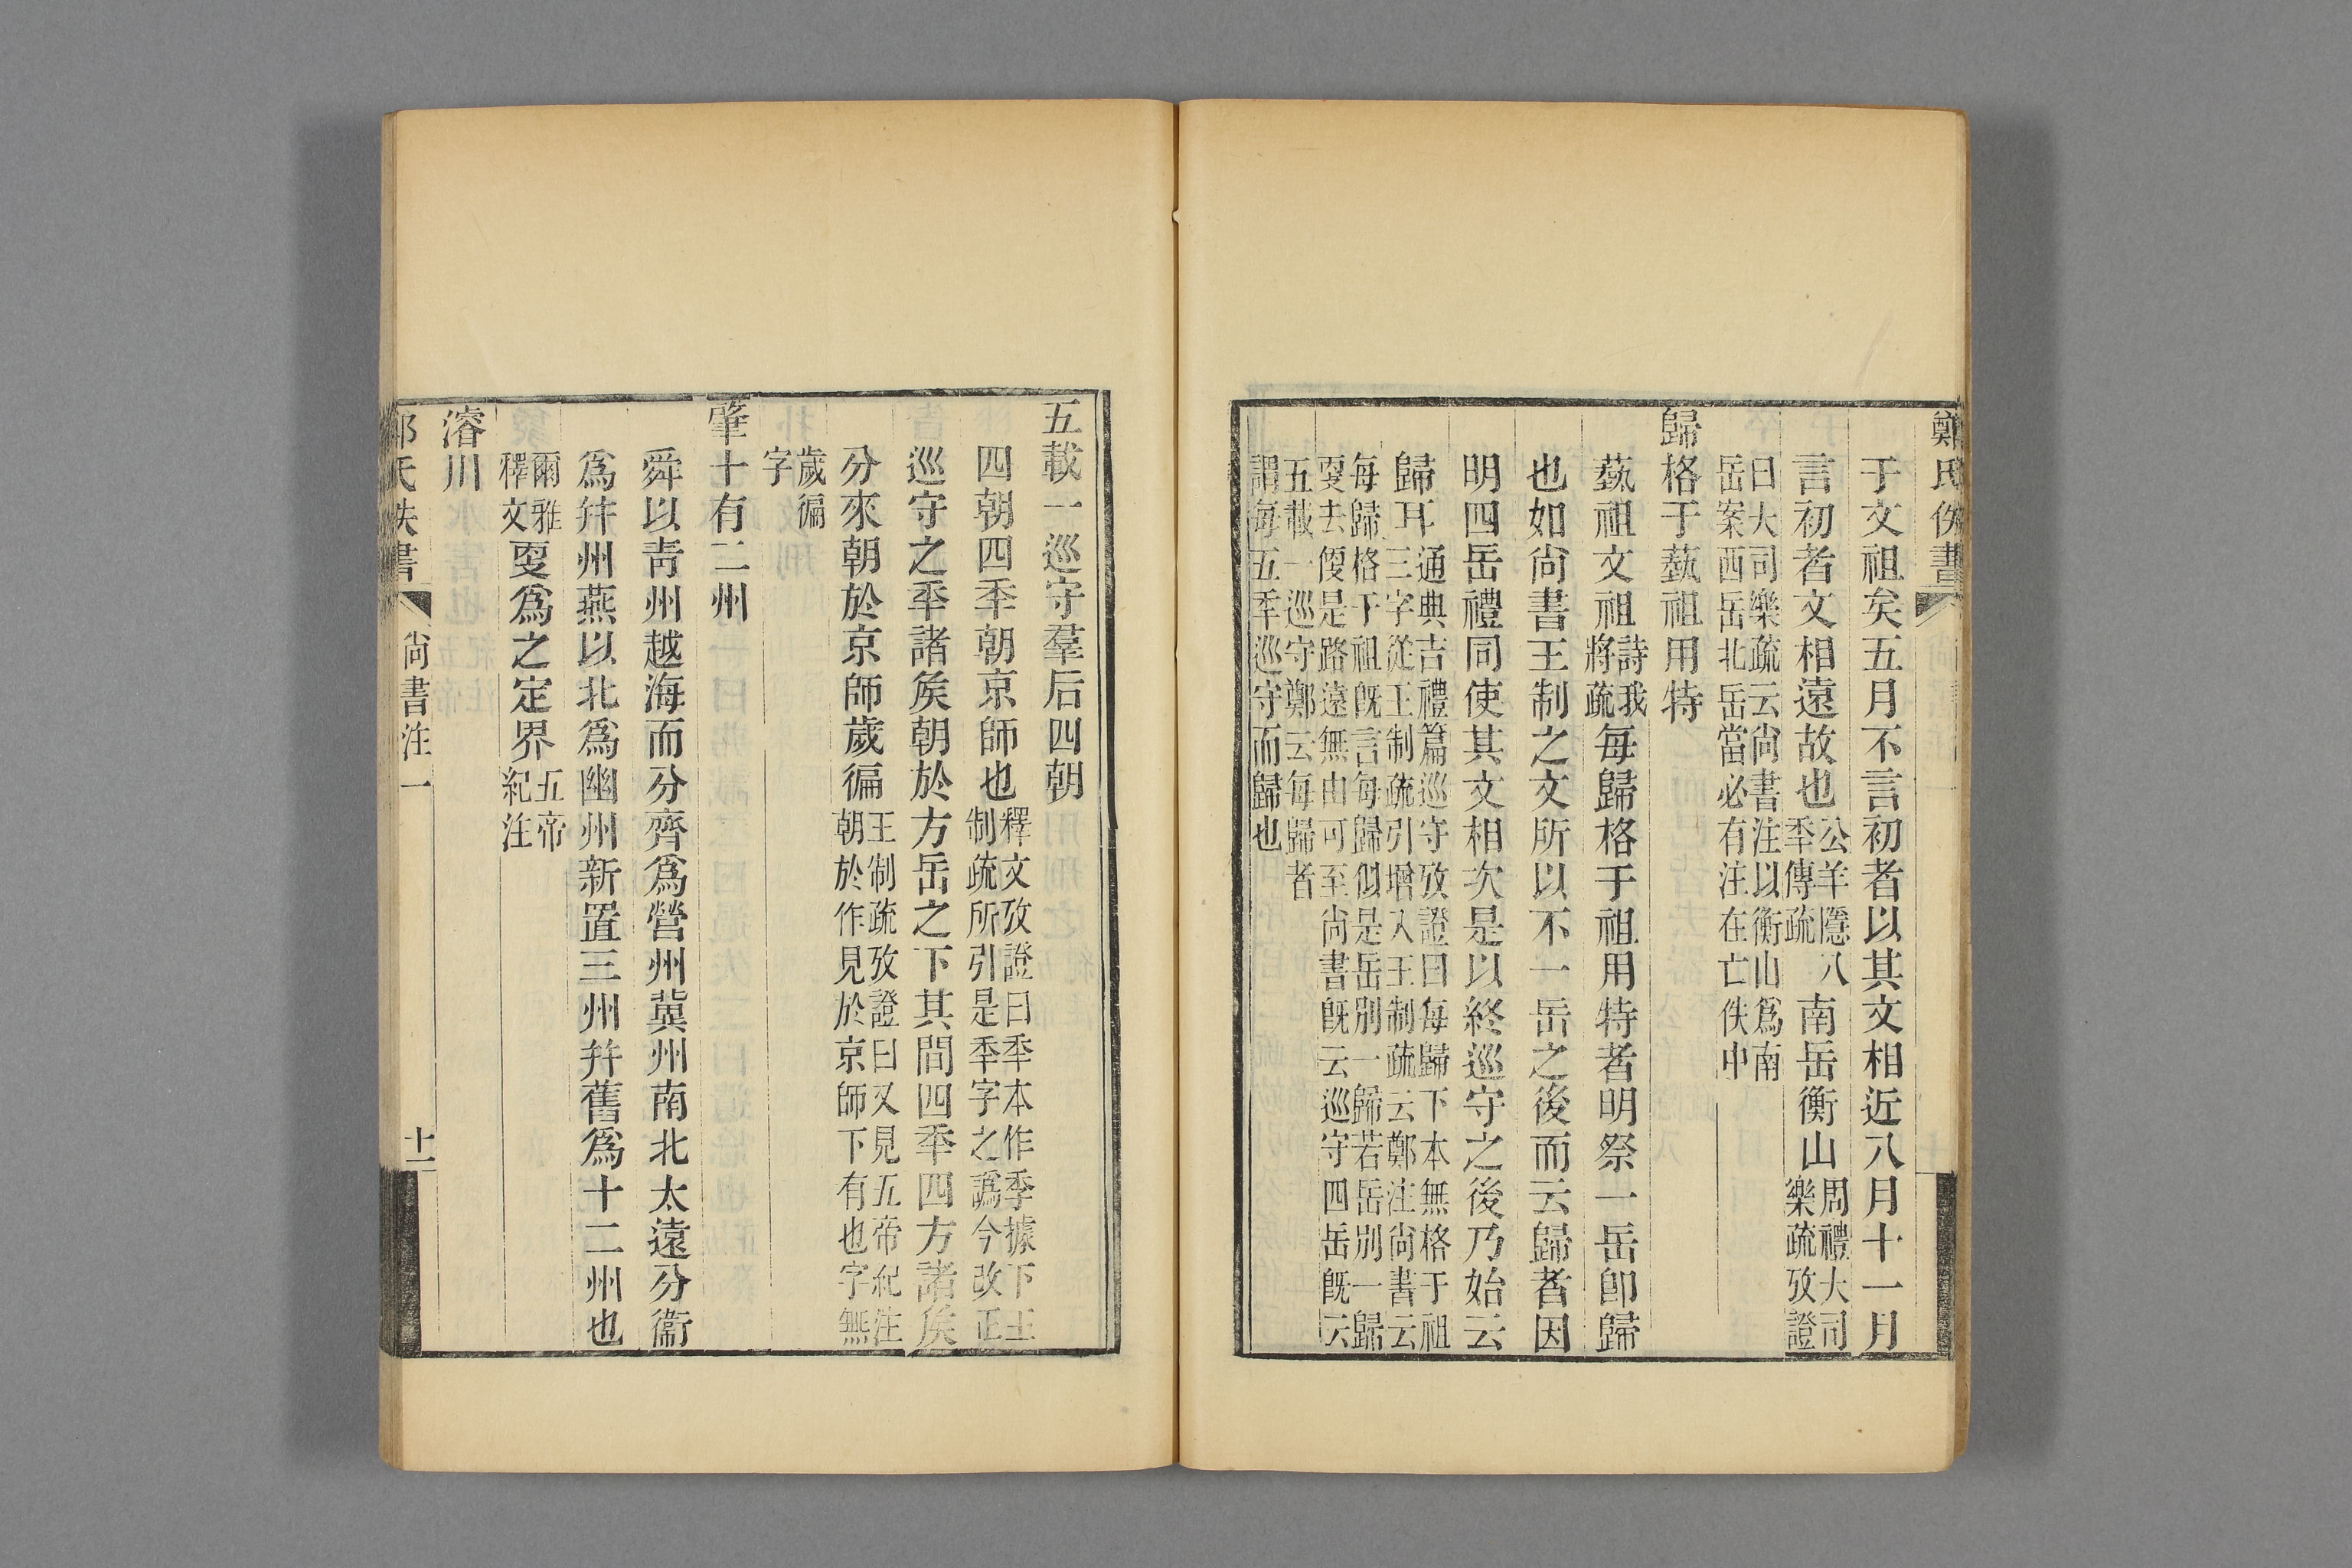 鄭氏佚書
于文祖矣五月不言初者以其文相近八月十一月
言初者文相遠故也公羊隱八秊傳疏南岳衡山周禮大司樂疏攷證
曰大司樂疏云尙書注以衡山爲南
岳案西岳北岳當必有注在亡佚中
歸格于蓺祖用特
蓺祖文祖詩我將疏每歸格于祖用特者明祭一岳卽歸
也如尙書王制之文所以不一岳之後而云歸者因
明四岳禮同使其文相次是以終巡守之後乃始云
歸耳通典吉禮篇巡守攷證曰每歸下本無格于祖三字從王制疏引增入王制疏云鄭注尙書云
每歸格于祖旣言每歸似是岳別一歸若岳別一歸
叓去㪅是路遠無由可至尙書旣云巡守四岳旣云
五載一巡守鄭云每歸者
謂每五秊巡守而歸也
五載一巡守羣后四朝
四朝四秊朝京師也釋文攷證曰秊本作季據下王制疏所引是秊字之譌今改正
巡守之秊諸矦朝於方岳之下其間四秊四方諸矦
分來朝於京師歲徧王制疏攷證曰又見五帝紀注朝於作見於京師下有也字無
歲徧
字
肇十有二州
舜以靑州越海而分齊爲營州冀州南北太遠分衞
爲幷州燕以北爲幽州新置三州幷舊爲十二州也
爾雅釋文㪅爲之定界五帝紀注
濬川
氏佚書 尙書注一 十一